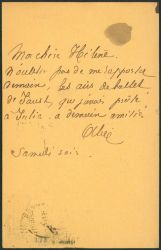 Ma chère Hélène
N'oubliez pas de me rapporter
demain, les airs de ballet
de Faust, que j'avais prêté
à Julie. à demain amitiés
Samedi soir